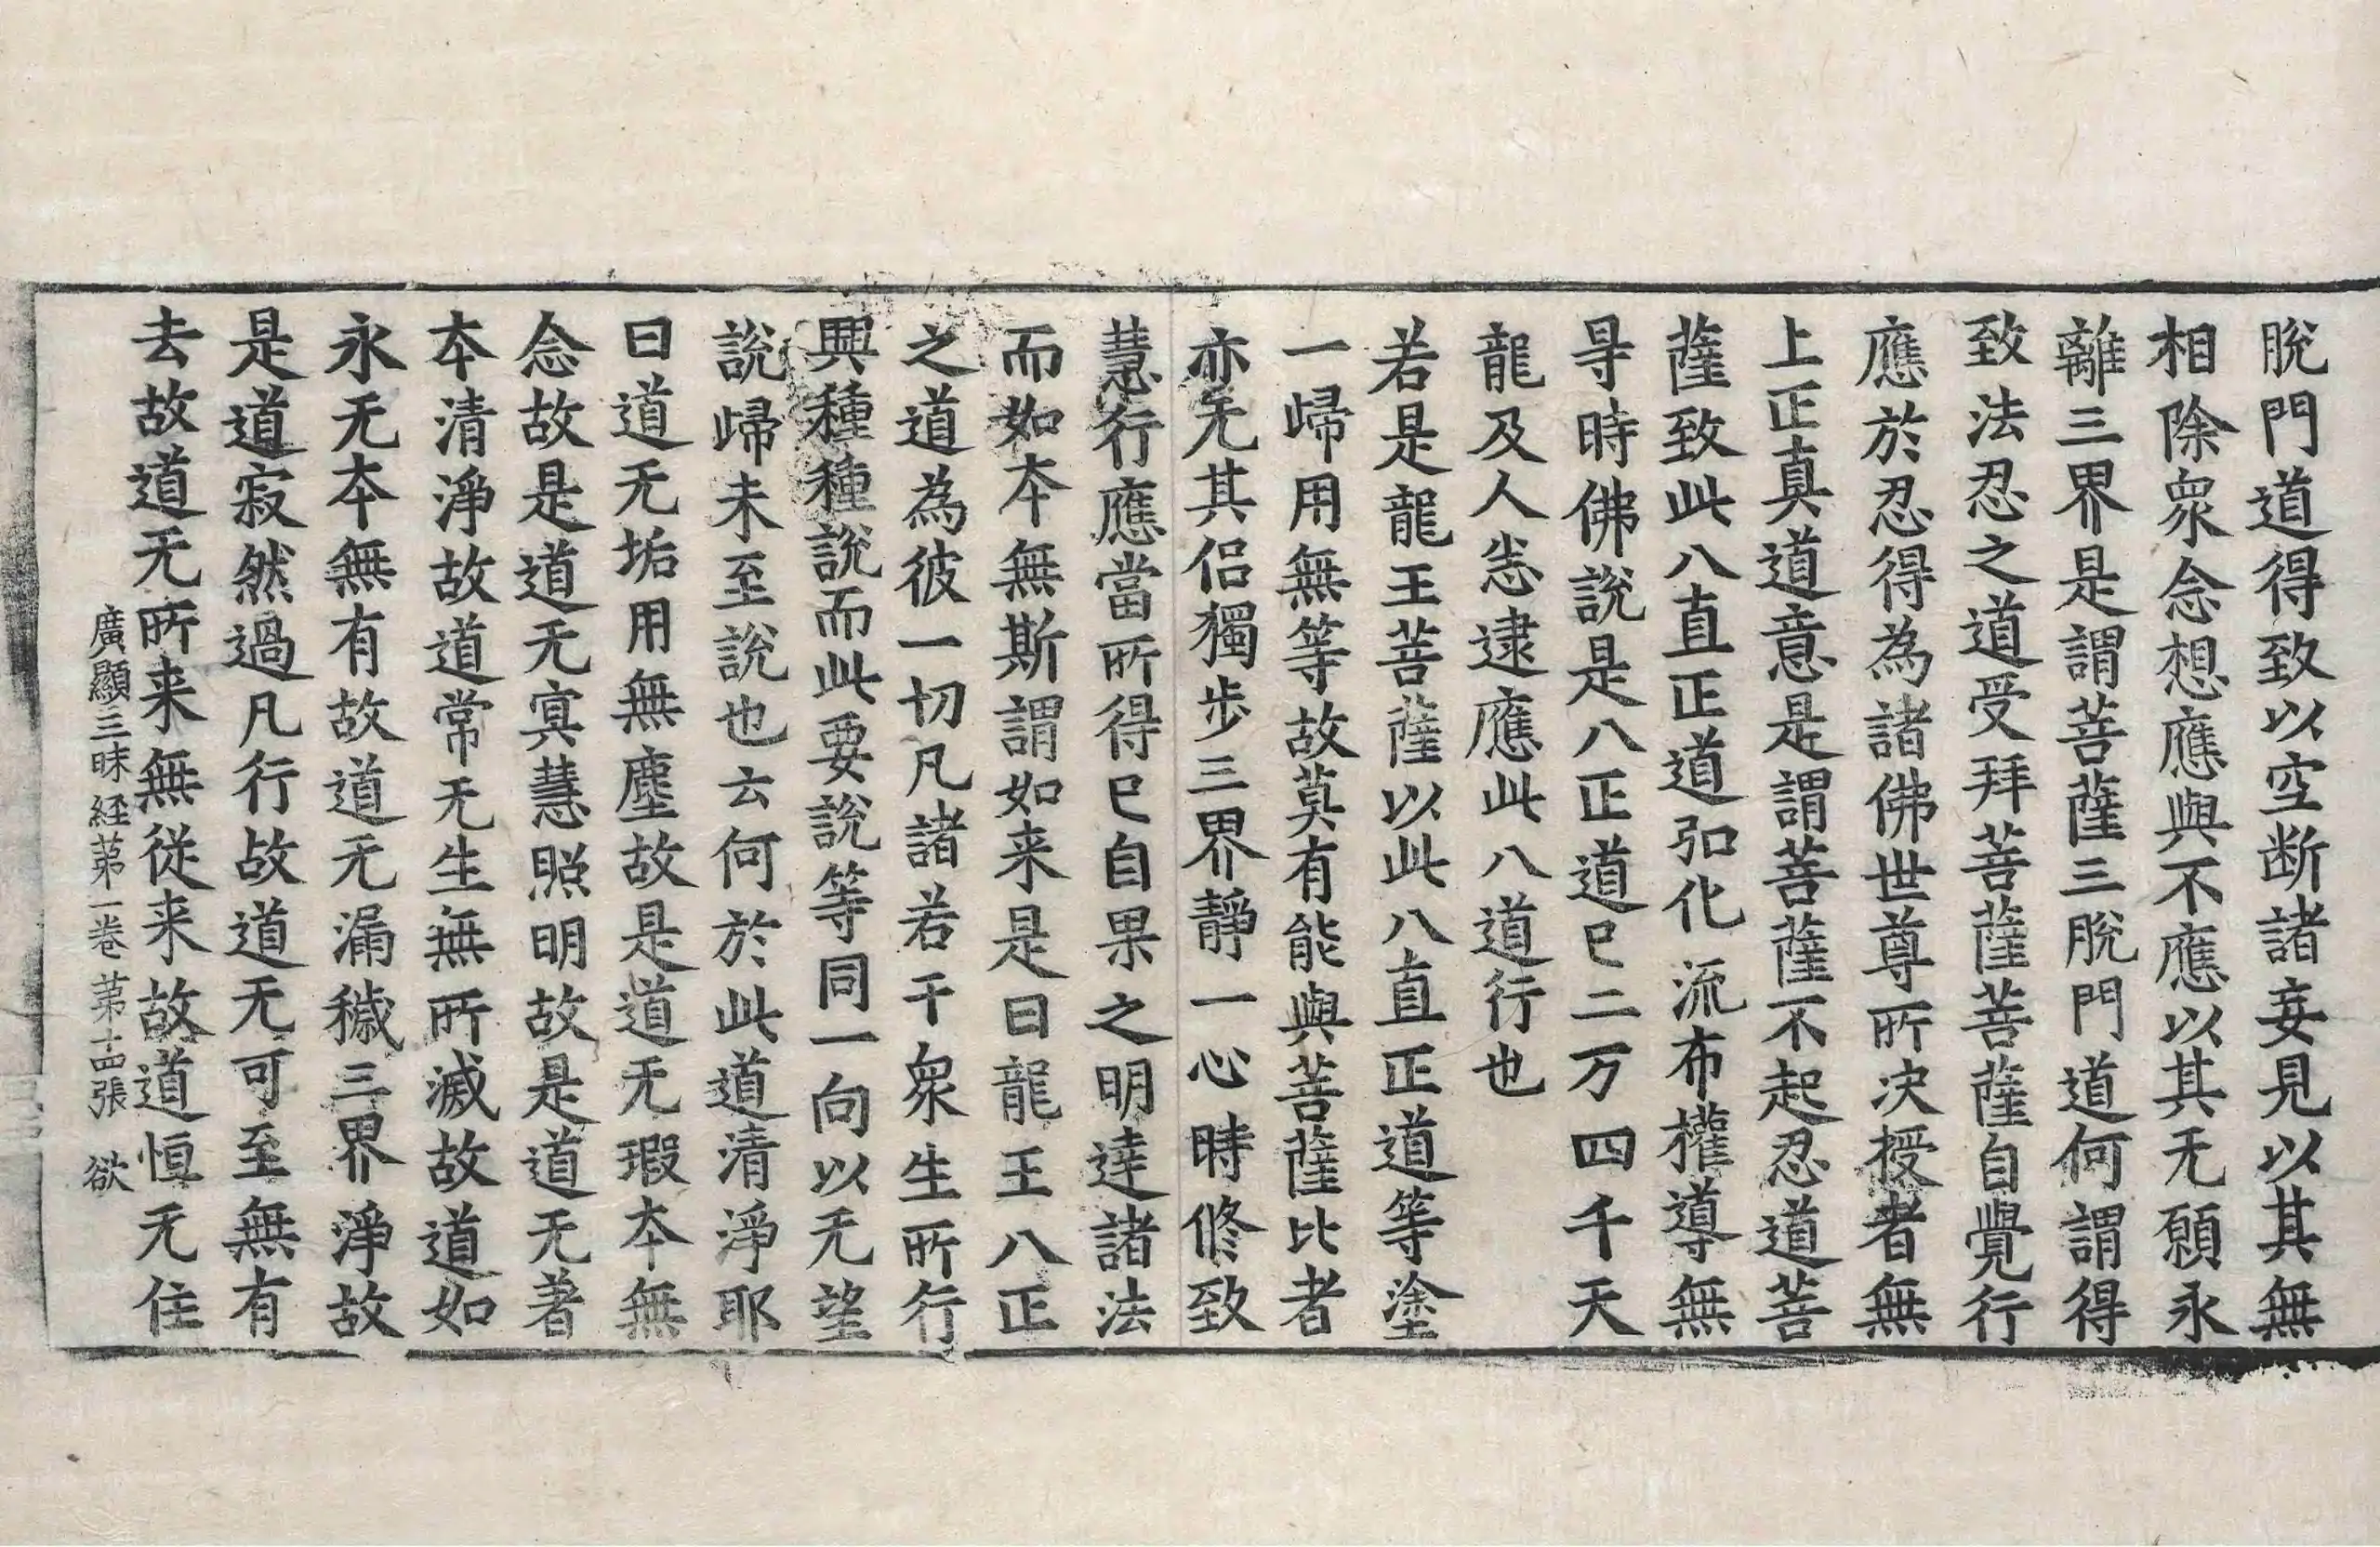 脫門道得致以空断諸妄見以其無
相除衆念想應與不應以其无願永
離三界是謂菩薩三脫門道何謂得
致法忍之道受拜菩薩菩薩自覺行
應於忍得為諸佛世尊所决授者無
上正真道意是謂菩薩不起忍道菩
薩致此八直正道弘化流布權導無
㝵時佛說是八正道已二万四千天
龍及人悉逮應此八道行也
若是龍王菩薩以此八直正道等塗
一歸用無等故莫有能與菩薩比者
亦无其侣獨步三界靜一心時修致
慧行應當所得已自果之明達諸法
而如本無斯謂如来是曰龍王八正
之道為彼一切凡諸若干衆生所行
興種種說而此要說等同一向以无望
說歸未至說也云何於此道清淨耶
曰道无垢用無塵故是道无瑕本無
念故是道无㝠慧照明故是道无著
本清淨故道常无生無所滅故道如
永无本無有故道无漏穢三界淨故
是道寂然過凡行故道无可至無有
去故道无所来無從来故道恒无住
廣顯三昧経苐一卷苐十四張 欲